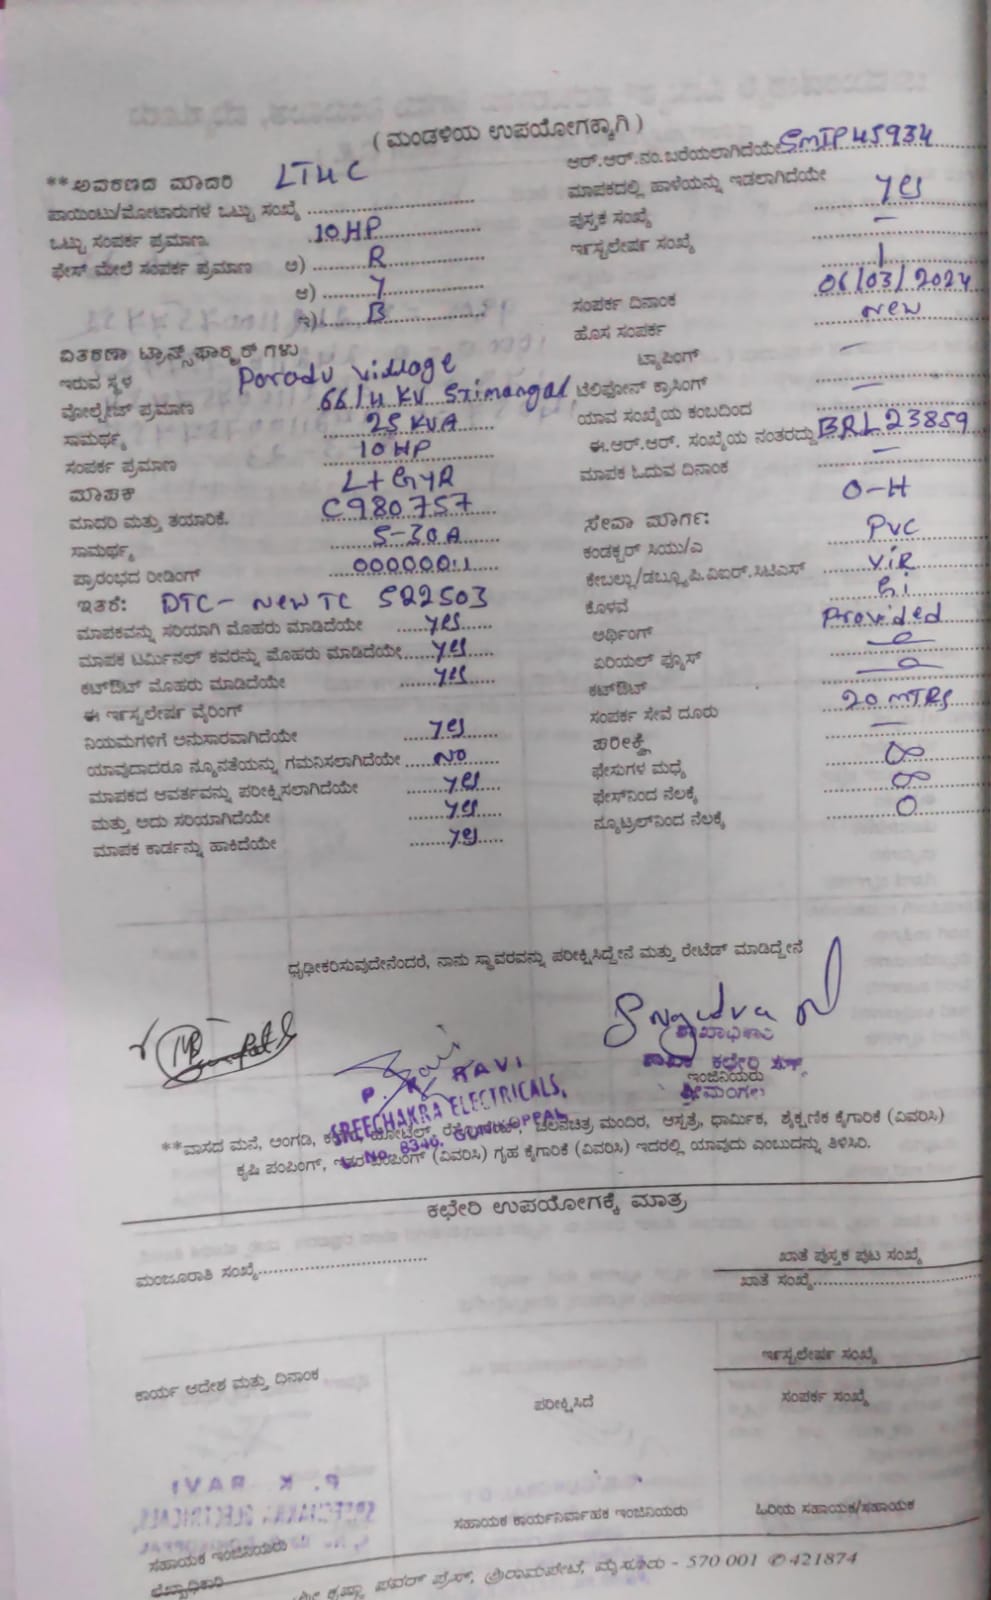 ( ಮಂಡಳಿಯ ಉಪಯೋಗಕ್ಕಾಗಿ )
**ಆವರಣದ ಮಾದರಿ LT4C
ಆರ್.ಆರ್.ನಂ.ಬರೆಯಲಾಗಿದೆಯೇ SMIP45934
ಪಾಯಿಂಟು/ಮೋಟಾರುಗಳ ಒಟ್ಟು ಸಂಖ್ಯೆ
ಮಾಪಕದಲ್ಲಿ ಹಾಳೆಯನ್ನು ಇಡಲಾಗಿದೆಯೇ yes
ಒಟ್ಟು ಸಂಪರ್ಕ ಪ್ರಮಾಣ 10 HP
ಪುಸ್ತಕ ಸಂಖ್ಯೆ —
ಫೇಸ್ ಮೇಲೆ ಸಂಪರ್ಕ ಪ್ರಮಾಣ ಅ) R
ಇನ್ಸ್ಟಲೇಷನ್ ಸಂಖ್ಯೆ 1
ಆ) Y
ಸಂಪರ್ಕ ದಿನಾಂಕ 06/03/2024
ಇ) B
ಹೊಸ ಸಂಪರ್ಕ New
ವಿತರಣಾ ಟ್ರಾನ್ಸ್‌ಫಾರ್ಮರ್ ಗಳು
ಟ್ಯಾಪಿಂಗ್ —
ಇರುವ ಸ್ಥಳ Poradu Village
ಟೆಲಿಫೋನ್ ಕ್ರಾಸಿಂಗ್ —
ವೋಲ್ಟೇಜ್ ಪ್ರಮಾಣ 66/11 KV Srimangal
ಯಾವ ಸಂಖ್ಯೆಯ ಕಂಬದಿಂದ
ಸಾಮರ್ಥ್ಯ 25 KVA
ಈ.ಆರ್.ಆರ್. ಸಂಖ್ಯೆಯ ನಂತರದ್ದು BRL23859
ಸಂಪರ್ಕ ಪ್ರಮಾಣ 10 HP
ಮಾಪಕ ಓದುವ ದಿನಾಂಕ —
ಮಾಪಕ L+GyR
O-H
ಮಾದರಿ ಮತ್ತು ತಯಾರಿಕೆ. C980757
ಸೇವಾ ಮಾರ್ಗ:
ಸಾಮರ್ಥ್ಯ 5-30A
ಕಂಡಕ್ಟರ್ ಸಿಯು/ಎ PVC
ಪ್ರಾರಂಭದ ರೀಡಿಂಗ್ 000000.1
ಕೇಬಲ್ಲು/ಡಬ್ಲ್ಯೂ.ಪಿ.ವಿಐಆರ್.ಸಿಟಿಎಸ್ VIR
ಇತರೆ: DTC- New TC 522503
ಕೊಳವೆ Gi
ಮಾಪಕವನ್ನು ಸರಿಯಾಗಿ ಮೊಹರು ಮಾಡಿದೆಯೇ yes
ಅರ್ಥಿಂಗ್ Provided
ಮಾಪಕ ಟರ್ಮಿನಲ್ ಕವರನ್ನು ಮೊಹರು ಮಾಡಿದೆಯೇ yes
ಏರಿಯಲ್ ಫ್ಯೂಸ್
ಕಟ್‌ಔಟ್ ಮೊಹರು ಮಾಡಿದೆಯೇ yes
ಕಟ್‌ಔಟ್
ಈ ಇನ್ಸ್ಟಲೇಷನ್ ವೈರಿಂಗ್
ಸಂಪರ್ಕ ಸೇವೆ ದೂರು 20 MTRS
ನಿಯಮಗಳಿಗೆ ಅನುಸಾರವಾಗಿದೆಯೇ yes
ಪರೀಕ್ಷೆ —
ಯಾವುದಾದರೂ ನ್ಯೂನತೆಯನ್ನು ಗಮನಿಸಲಾಗಿದೆಯೇ No
ಫೇಸುಗಳ ಮಧ್ಯೆ ∞
ಮಾಪಕದ ಆವರ್ತವನ್ನು ಪರೀಕ್ಷಿಸಲಾಗಿದೆಯೇ yes
ಫೇಸ್‌ನಿಂದ ನೆಲಕ್ಕೆ ∞
ಮತ್ತು ಅದು ಸರಿಯಾಗಿದೆಯೇ yes
ನ್ಯೂಟ್ರಲ್‌ನಿಂದ ನೆಲಕ್ಕೆ 0
ಮಾಪಕ ಕಾರ್ಡನ್ನು ಹಾಕಿದೆಯೇ yes
ಧೃಢೀಕರಿಸುವುದೇನೆಂದರೆ, ನಾನು ಸ್ಥಾವರವನ್ನು ಪರೀಕ್ಷಿಸಿದ್ದೇನೆ ಮತ್ತು ರೇಟೆಡ್ ಮಾಡಿದ್ದೇನೆ
ಶಾಖಾಧಿಕಾರಿ
P. K. RAVI
ಶಾಖಾ ಕಛೇರಿ
SREECHAKRA ELECTRICALS,
ಇಂಜಿನಿಯರು
ಶ್ರೀಮಂಗಲ
L. No. 8346, GONICOPPAL
**ವಾಸದ ಮನೆ, ಅಂಗಡಿ, ಹೋಟೆಲ್, ಚಲನಚಿತ್ರ ಮಂದಿರ, ಆಸ್ಪತ್ರೆ, ಧಾರ್ಮಿಕ, ಶೈಕ್ಷಣಿಕ ಕೈಗಾರಿಕೆ (ವಿವರಿಸಿ)
ಕೃಷಿ ಪಂಪಿಂಗ್, ಇತರ ಪಂಪಿಂಗ್ (ವಿವರಿಸಿ) ಗೃಹ ಕೈಗಾರಿಕೆ (ವಿವರಿಸಿ) ಇದರಲ್ಲಿ ಯಾವುದು ಎಂಬುದನ್ನು ತಿಳಿಸಿರಿ.
ಕಛೇರಿ ಉಪಯೋಗಕ್ಕೆ ಮಾತ್ರ
ಮಂಜೂರಾತಿ ಸಂಖ್ಯೆ
ಖಾತೆ ಪುಸ್ತಕ ಪುಟ ಸಂಖ್ಯೆ
ಖಾತೆ ಸಂಖ್ಯೆ
ಇನ್ಸ್ಟಲೇಷನ್ ಸಂಖ್ಯೆ
ಕಾರ್ಯ ಆದೇಶ ಮತ್ತು ದಿನಾಂಕ
ಪರೀಕ್ಷಿಸಿದೆ
ಸಂಪರ್ಕ ಸಂಖ್ಯೆ
ಸಹಾಯಕ ಇಂಜಿನಿಯರು
ಸಹಾಯಕ ಕಾರ್ಯನಿರ್ವಾಹಕ ಇಂಜಿನಿಯರು
ಹಿರಿಯ ಸಹಾಯಕ/ಸಹಾಯಕ
ಲೆಖ್ಖಾಧಿಕಾರಿ
ಶ್ರೀ ಕೃಷ್ಣಾ ಪವರ್ ಪ್ರೆಸ್, ಶ್ರೀರಾಮಪೇಟೆ, ಮೈಸೂರು - 570 001 ✆ 421874